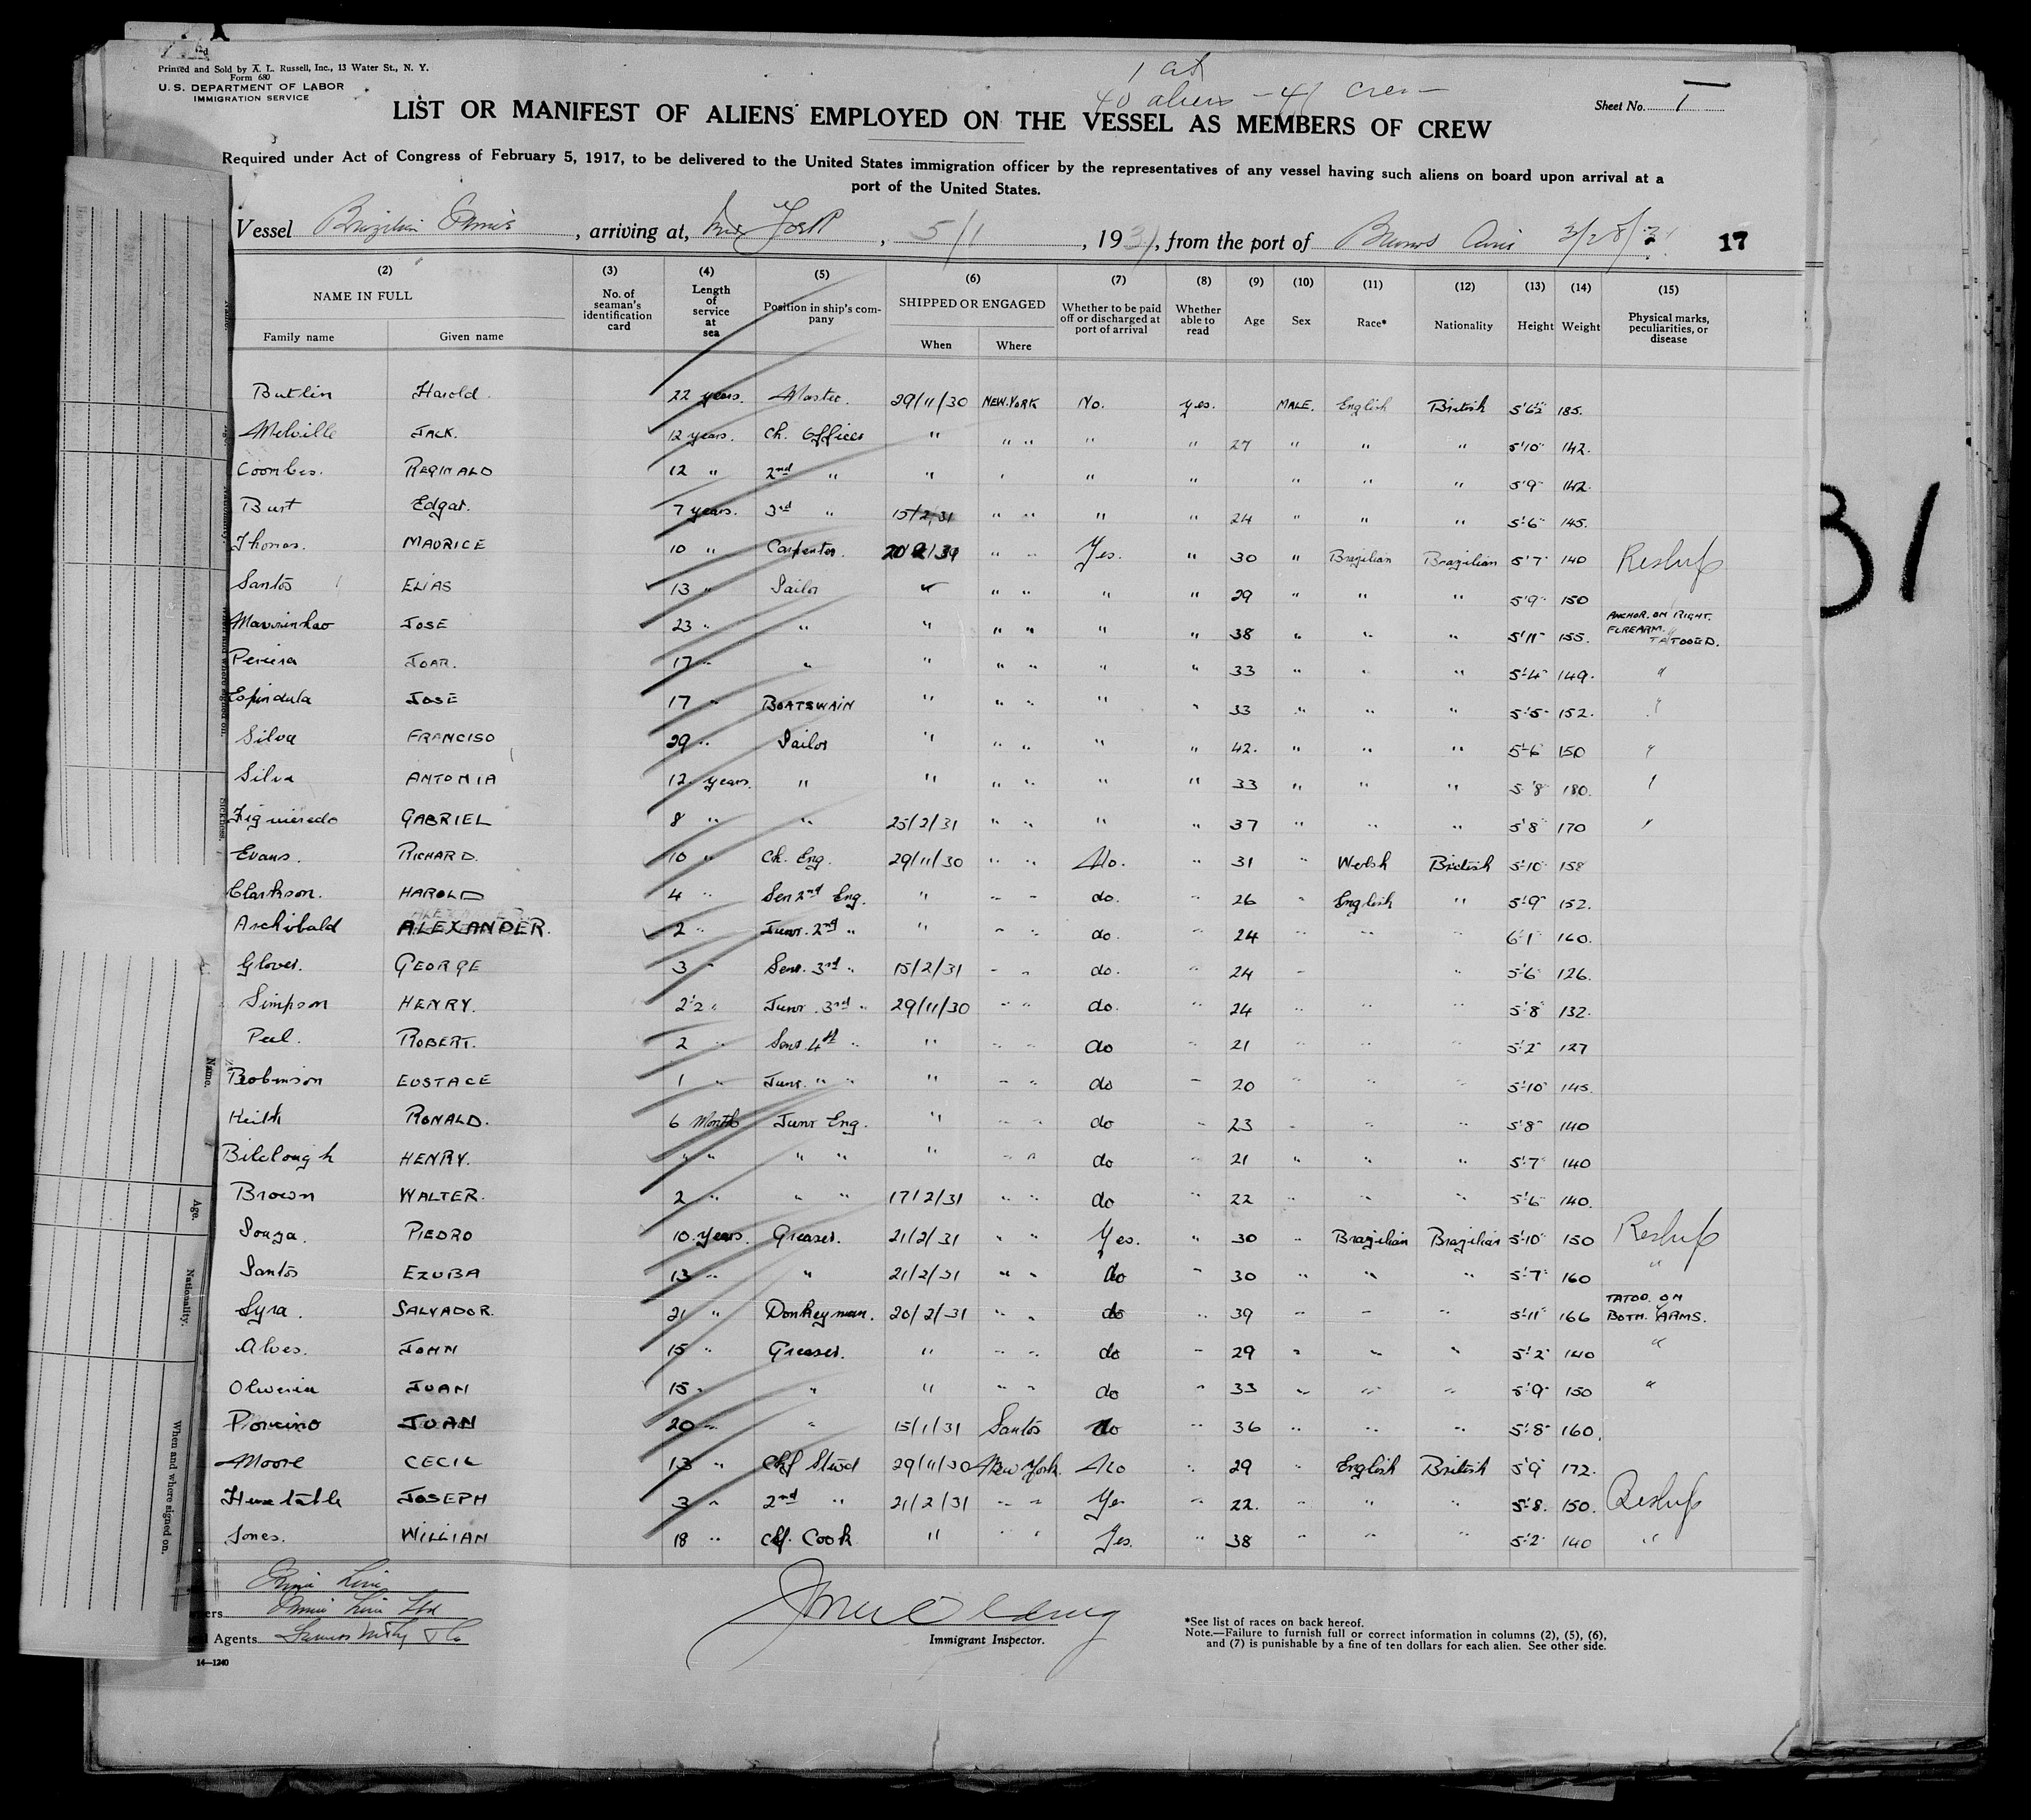 Printed and Sold by A. L. Russell, Inc., 13 Water St., N. Y.
Form 680
U. S. DEPARTMENT OF LABOR
IMMIGRATION SERVICE
40 aliens - 41 crew
Sheet No. 1
LIST OR MANIFEST OF ALIENS EMPLOYED ON THE VESSEL AS MEMBERS OF CREW
Required under Act of Congress of February 5, 1917, to be delivered to the United States immigration officer by the representatives of any vessel having such aliens on board upon arrival at a
port of the United States.
Vessel Brazilian Prince, arriving at, New York, 5/1, 1931, from the port of Buenos Aires 3/28/31 17
(2) (3) (4) (5) (6) (7) (8) (9) (10) (11) (12) (13) (14) (15)
NAME IN FULL No. of seaman's identification card Length of service at sea Position in ship's company SHIPPED OR ENGAGED Whether to be paid off or discharged at port of arrival Whether able to read Age Sex Race* Nationality Height Weight Physical marks, peculiarities, or disease
Family name Given name When Where
Butlin Harold. 22 years. Master. 29/11/30 NEW.YORK No. yes. MALE. English British 5'6½" 185.
Melville JACK. 12 years. Ch. Officer " " " " " 27 " " " 5'10" 142.
Coombes. REGINALD 12 " 2nd " " " " " " " " 5'9" 142.
Burt Edgar. 7 years. 3rd " 15/2/31 " " " " 24 " " " 5'6" 145.
Thomas. MAURICE 10 " Carpenter. 20/2/31 " " Yes. " 30 " Brazilian Brazilian 5'7" 140 Reship
Santos ELIAS 13 " Sailor " " " " " 29 " " " 5'9" 150
Maurinhao JOSE 23 " " " " " " " 38 " " " 5'11" 155. ANCHOR. ON RIGHT. FOREARM. TATOOED.
Pereira JOAR. 17 " " " " " " " 33 " " " 5'4" 149. "
Espindula JOSE 17 " BOATSWAIN " " " " " 33 " " " 5'5" 152. "
Silva FRANCISO 29 " Sailor " " " " " 42. " " " 5'6" 150 "
Silva ANTONIA 12 years. " " " " " " 33 " " " 5'8" 180. "
Figuieredo GABRIEL 8 " " 25/2/31 " " " " 37 " " " 5'8" 170 "
Evans. RICHARD. 10 " Ch. Eng. 29/11/30 " " No. " 31 " Welsh British 5'10" 158
Clarkson. HAROLD 4 " Sen 2nd Eng. " " " do. " 26 " English " 5'9" 152.
Archibald ALEXANDER. 2 " Junr. 2nd " " " " do. " 24 " " " 6'1" 160.
Glover. GEORGE 3 " Senr. 3rd " 15/2/31 " " do. " 24 " " 5'6" 126.
Simpson HENRY. 2½ " Junr. 3rd " 29/11/30 " " do. " 24 " " " 5'8" 132.
Peel. ROBERT. 2 " Senr. 4th " " " " do " 21 " " " 5'2" 127
Robinson EUSTACE 1 " Junr. " " " " " do " 20 " " " 5'10" 145.
Keith RONALD. 6 Months Junr Eng. " " " do " 23 " " " 5'8" 140
Bilclough HENRY. " " " " " " " do " 21 " " " 5'7" 140
Brown WALTER. 2 " " " 17/2/31 " " do " 22 " " " 5'6" 140.
Souza PIEDRO 10 years. Greaser. 21/2/31 " " Yes. " 30 " Brazilian Brazilian 5'10" 150 Reship
Santos EZUBA 13 " " 21/2/31 " " do " 30 " " " 5'7" 160 "
Lyra. SALVADOR. 21 " Donkeyman. 20/2/31 " " do " 39 " " " 5'11" 166 TATOO. ON BOTH. ARMS.
Alves. JOHN 15 " Greaser. " " " do " 29 " " " 5'2" 140 "
Oliveria JUAN 15 " " " " " do " 33 " " " 5'9" 150 "
Porcino JUAN 20 " " 15/1/31 Santos do " 36 " " " 5'8" 160.
Moore CECIL 13 " Chf Stwd 29/11/30 New York. No " 29 " English British 5'9" 172.
Huxtable JOSEPH 3 " 2nd " 21/2/31 " " Yes " 22. " " " 5'8. 150. Reship
Jones. WILLIAN 18 " Chf. Cook " " " Yes. " 38 " " " 5'2" 140 "
Prince Line
Prince Line Ltd
Agents
Immigrant Inspector.
*See list of races on back hereof.
Note.—Failure to furnish full or correct information in columns (2), (5), (6),
and (7) is punishable by a fine of ten dollars for each alien. See other side.
14—1240
31
Name.
Age.
Nationality.
When and where signed on.
Sickness.